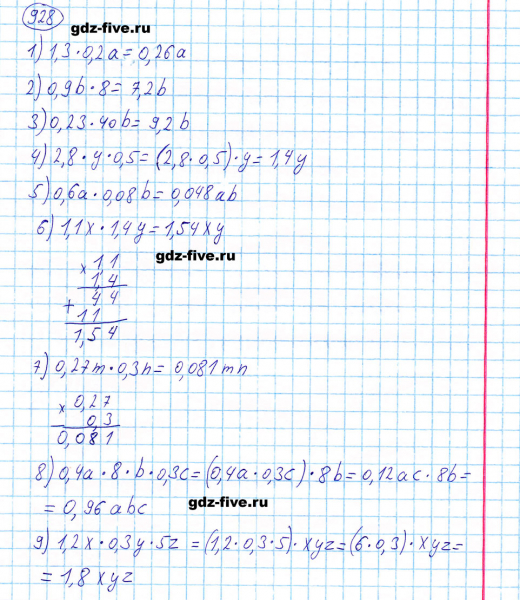 928
gdz-five.ru
1) 1,3 · 0,2a = 0,26a
2) 0,9b · 8 = 7,2b
3) 0,23 · 40b = 9,2b
4) 2,8 · y · 0,5 = (2,8 · 0,5) · y = 1,4y
5) 0,6a · 0,08b = 0,048ab
6) 1,1x · 1,4y = 1,54xy
gdz-five.ru
× 1,1
1,4
+ 44
11
1,54
7) 0,27m · 0,3n = 0,081mn
× 0,27
0,3
0,081
8) 0,4a · 8 · b · 0,3c = (0,4a · 0,3c) · 8b = 0,12ac · 8b =
= 0,96abc
gdz-five.ru
9) 1,2x · 0,3y · 5z = (1,2 · 0,3 · 5) · xyz = (6 · 0,3) · xyz =
= 1,8xyz